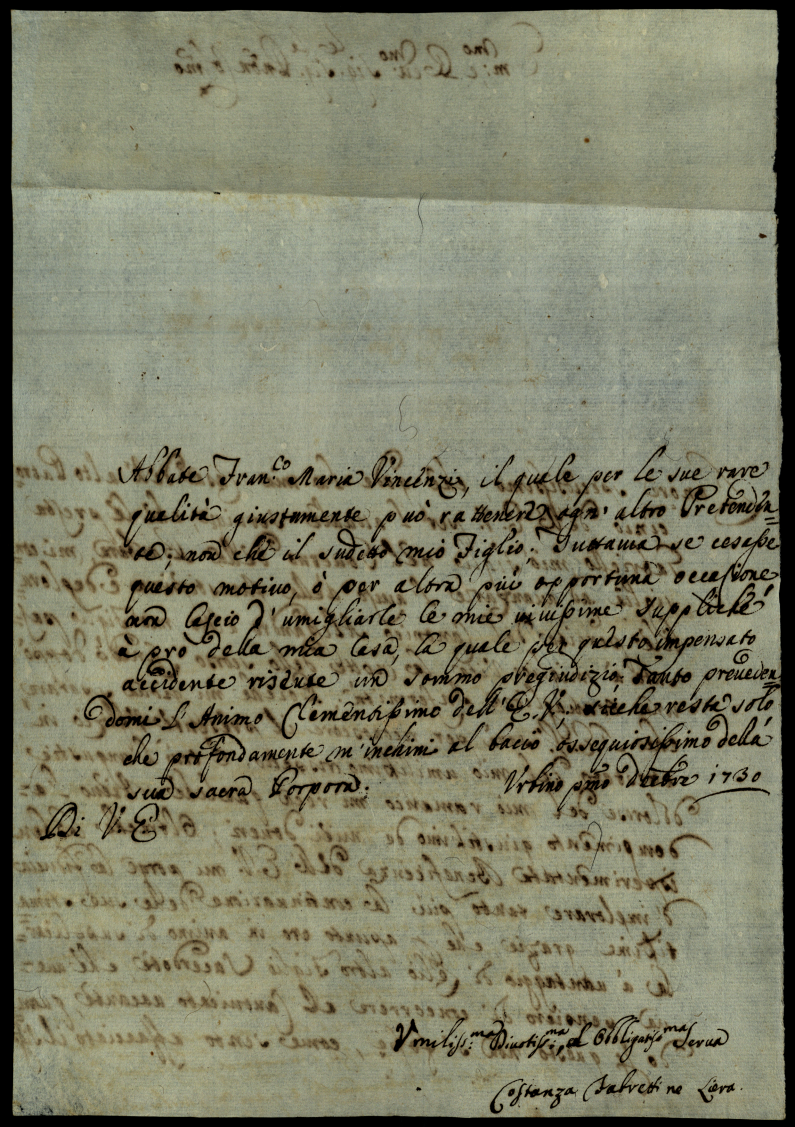 Abbate Fran.co Maria Vincenzi, il quale per le sue rare
qualità giustamente può rattenere ogn' altro Pretenden=
te, non che il sudetto mio Figlio; Tuttauia se cesasse
questo motiuo, ò per altra più opportuna occasione
non lascio d' umigliarle le mie uiuissime suppliche
à prò della mia Casa, la quale per questo impensato
accidente risente un sommo pregiudizio. Tanto preueden=
domi L'Animo Clementissimo dell' E. V., resta solo
che profondamente m' inchini al bacio osseguiosissimo della
sua sacra Porpora.
Vrbino pmo Xcebre 1730
Di V. E.
Vmiliss:ma Diuotiss:ma, ed Obbligatiss:ma Serua
Costanza Fabretti ne